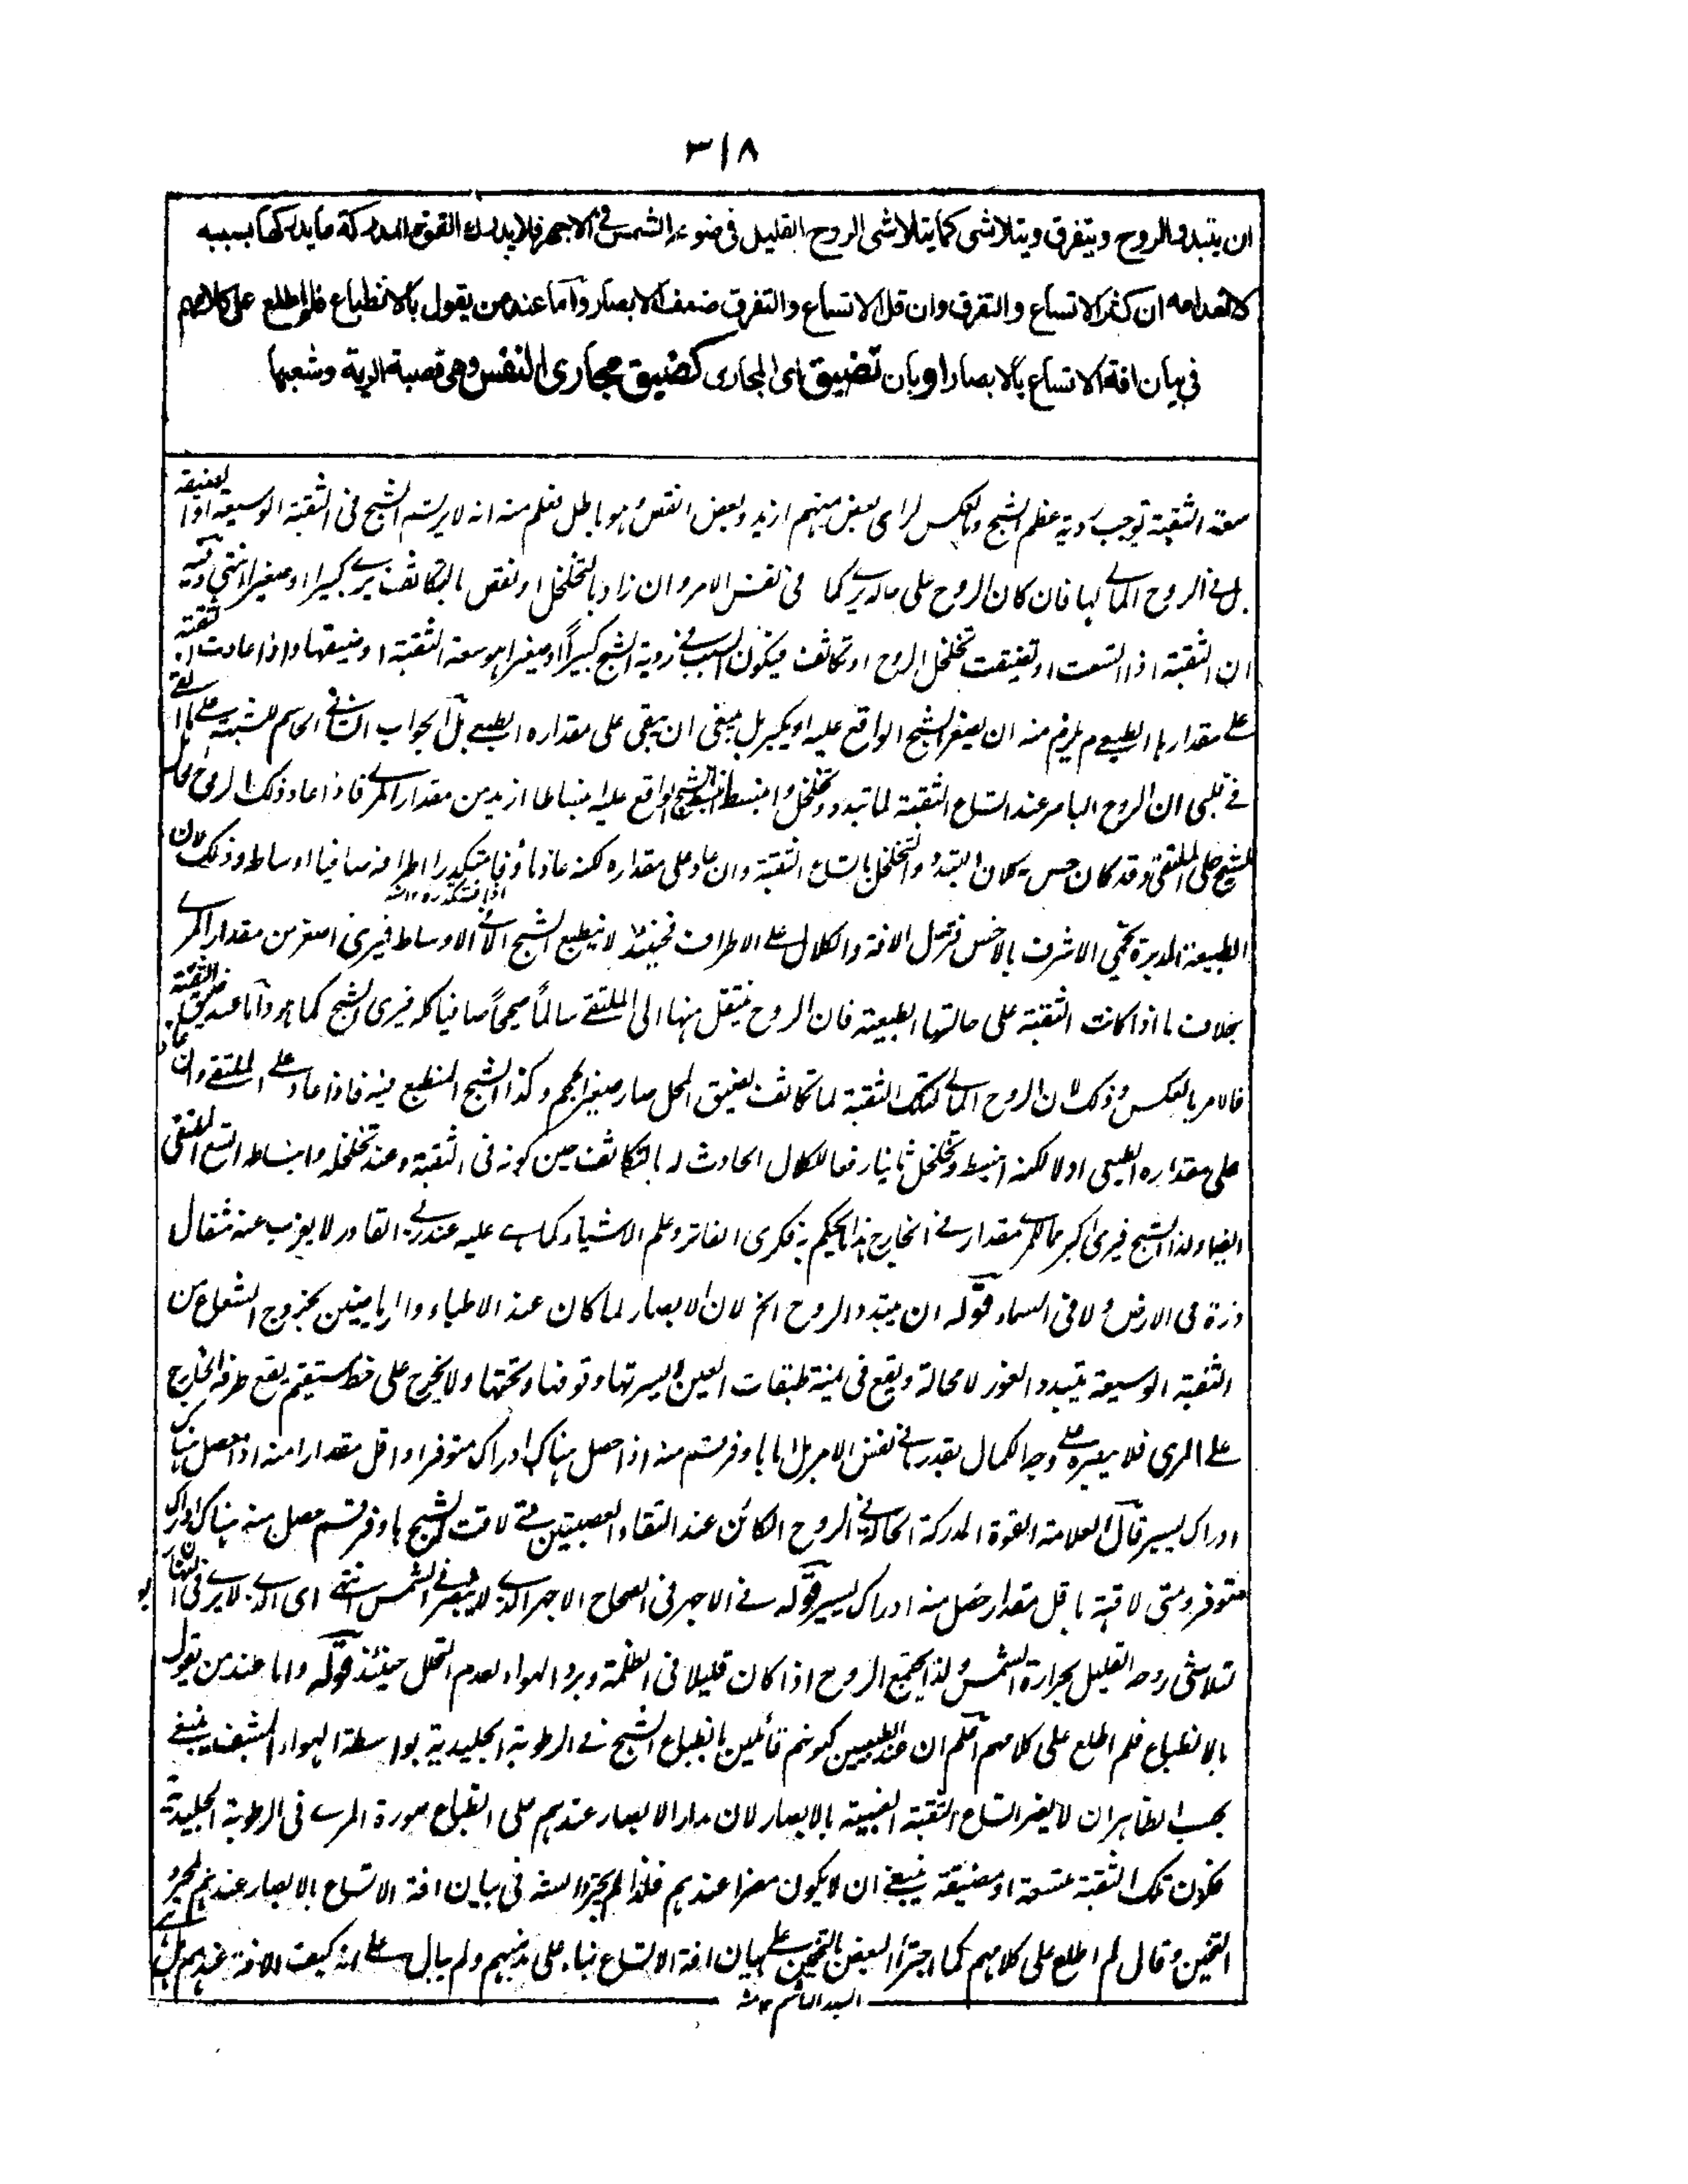 ٣١٨
ان يتبدد الروح ويتفرق ويتلاشى كما يتلاشى الروح القليل فى ضوء الشمس فى الاجهر فلا يدرك القوة المدركة ما يدركها بسببه
لانعدامه ان كثر الاتساع والتفرق وان قل الاتساع والتفرق ضعف الابصار واما عند من يقول بالانطباع فلم اطلع على كلامهم
فى بيان افة الاتساع بالابصار او بان تضيق اى المجارى كضيق مجارى النفس وهى قصبة الرية وشعبها
سعة الثقبة توجب روية عظم الشبح وبالعكس لراى بعض منهم ازيد وبعض انقص وهو باطل فعلم منه انه لا يرتسم الشبح فى الثقبة الوسيعة او الضيقة
بل فى الروح المالى لها فان كان الروح على حاله يرى كما فى نفس الامر وان زاد بالتخلخل او نقص بالتكاثف يرى كبيرا او صغيرا انتهى وفيه
ان الثقبة اذا اتسعت او تضيقت تخلخل الروح او تكاثف فيكون السبب فى روية الشبح كبيراً او صغيرا هو سعة الثقبة او ضيقها واذا عادت الثقبة
على مقدارها الطبيعى لم يلزم منه ان يصغر الشبح الواقع عليه او يكبر بل ينبغى ان يبقى على مقداره الطبيعى بل الجواب الشافى الحاسم للشبهة على ما القى
فى قلبى ان الروح الباصر عند اتساع الثقبة لما تبدد وتخلخل وانبسط انبسط الشبح الواقع عليه انبساطا ازيد من مقدار المرئى فاذا عاد ذلك الروح حاملا
للشبح على الملتقى وقد كان حس بكلال التبدد والتخلخل باتساع الثقبة وان عاد على مقداره لكنه عاد ماؤفا متكدرا اطرافه صافيا اوساطه وذلك لان
الطبيعة المدبرة تحمى الاشرف بالاخس فترسل الافة والكلال على الاطراف فحينئذ لا ينطبع الشبح الا فى الاوساط فيرى اصغر من مقدار المرئى
بخلاف ما اذا كانت الثقبة على حالتها الطبيعية فان الروح ينتقل منها الى الملتقى سالماً صحيحاً صافيا كله فيرى الشبح كما هو واما عند ضيق الثقبة
فالامر بالعكس وذلك لان الروح المالى لتلك الثقبة لما تكاثف لضيق المحل صار صغير الحجم وكذا الشبح المنطبع فيه فاذا عاد على الملتقى وان
على مقداره الطبيعى اولا لكنه انبسط وتخلخل ثانيا رفعا للكلال الحادث له بالتكاثف حين كونه فى الثقبة وعند تخلخله وانبساطه اتسع الملتقى
ايضا وكذا الشبح فيرى اكبر مما للمرئى مقدار فى الخارج هذا ما حكم به فكرى الفاتر وعلم الاشياء كما هى عليه عند ربى القادر لا يعزب عنه مثقال
ذرة فى الارض ولا فى السماء قوله ان يتبدد الروح الخ لان الابصار لما كان عند الاطباء والرياضيين بخروج الشعاع من
الثقبة الوسيعة يتبدد النور لا محالة ويقع فى يمنة طبقات العين ويسرتها وفوقها وتحتها ولا يخرج على خط مستقيم يقع طرفه الخارج
على المرئى فلا يبصره على وجه الكمال بقدر ما فى نفس الامر بل اما باوفر قسم منه اذا حصل هناك ادراك متوفر او اقل مقدارا منه اذا حصل هناك
ادراك يسير قال العلامة القوة المدركة الحالة فى الروح الكائن عند التقاء العصبتين متى لاقت الشبح باوفر قسم حصل منه هناك ادراك
متوفر ومتى لاقته باقل مقدار حصل منه ادراك يسير قوله فى الاجهر فى الصحاح الاجهر الذى لا يبصر فى الشمس انتهى اى الذى لا يرى فى النهار
لتلاشى روحه القليل بحرارة الشمس ولذا يجتمع الروح اذا كان قليلا فى الظلمة وبرد الهواء لعدم التحلل حينئذ قوله واما عند من يقول
بالانطباع فلم اطلع على كلامهم اعلم ان عند الطبيعيين كونهم قائلين بانطباع الشبح فى الرطوبة الجليدية بواسطة الهواء المشف ينبغى
بحسب الظاهر ان لا يضر اتساع الثقبة العينية بالابصار لان مدار الابصار عندهم على انطباع صورة المرئى فى الرطوبة الجليدية
فكون تلك الثقبة متسعة او ضيقة ينبغى ان لا يكون مضرا عندهم فلذا لم يجترا الشه فى بيان افة الاتساع بالابصار عندهم
التخمين وقال لم اطلع على كلامهم كما اجترأ البعض بالتخمين على بيان افة الاتساع بناء على مذهبهم ولم يبال على انه كيف الافة عندهم بل
السيد الهاشم